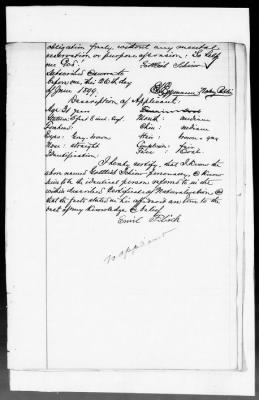 obligation freely, without any mental
reservation or purpose of evasion: So help
me God.
Gottlieb
Subscribed & sworn to
before me, this 26th day
of June 1899.
Notary Public
Description of Applicant.
Age: 21 years
Stature: 5 feet 8 inches, Eng. Mouth: medium
Forehead: Chin: medium
Eyes: Grey-brown Hair: brown-gray
Nose: straight Complexion: fair
Identification. Face: Oval
I hereby certify, that I know the
above named Gottlieb personally, & know
him to be the identical person referred to in the
within described Certificate of Naturalization &
that the facts stated in his affidavit are true to the
best of my knowledge & belief
Emil
to applicant